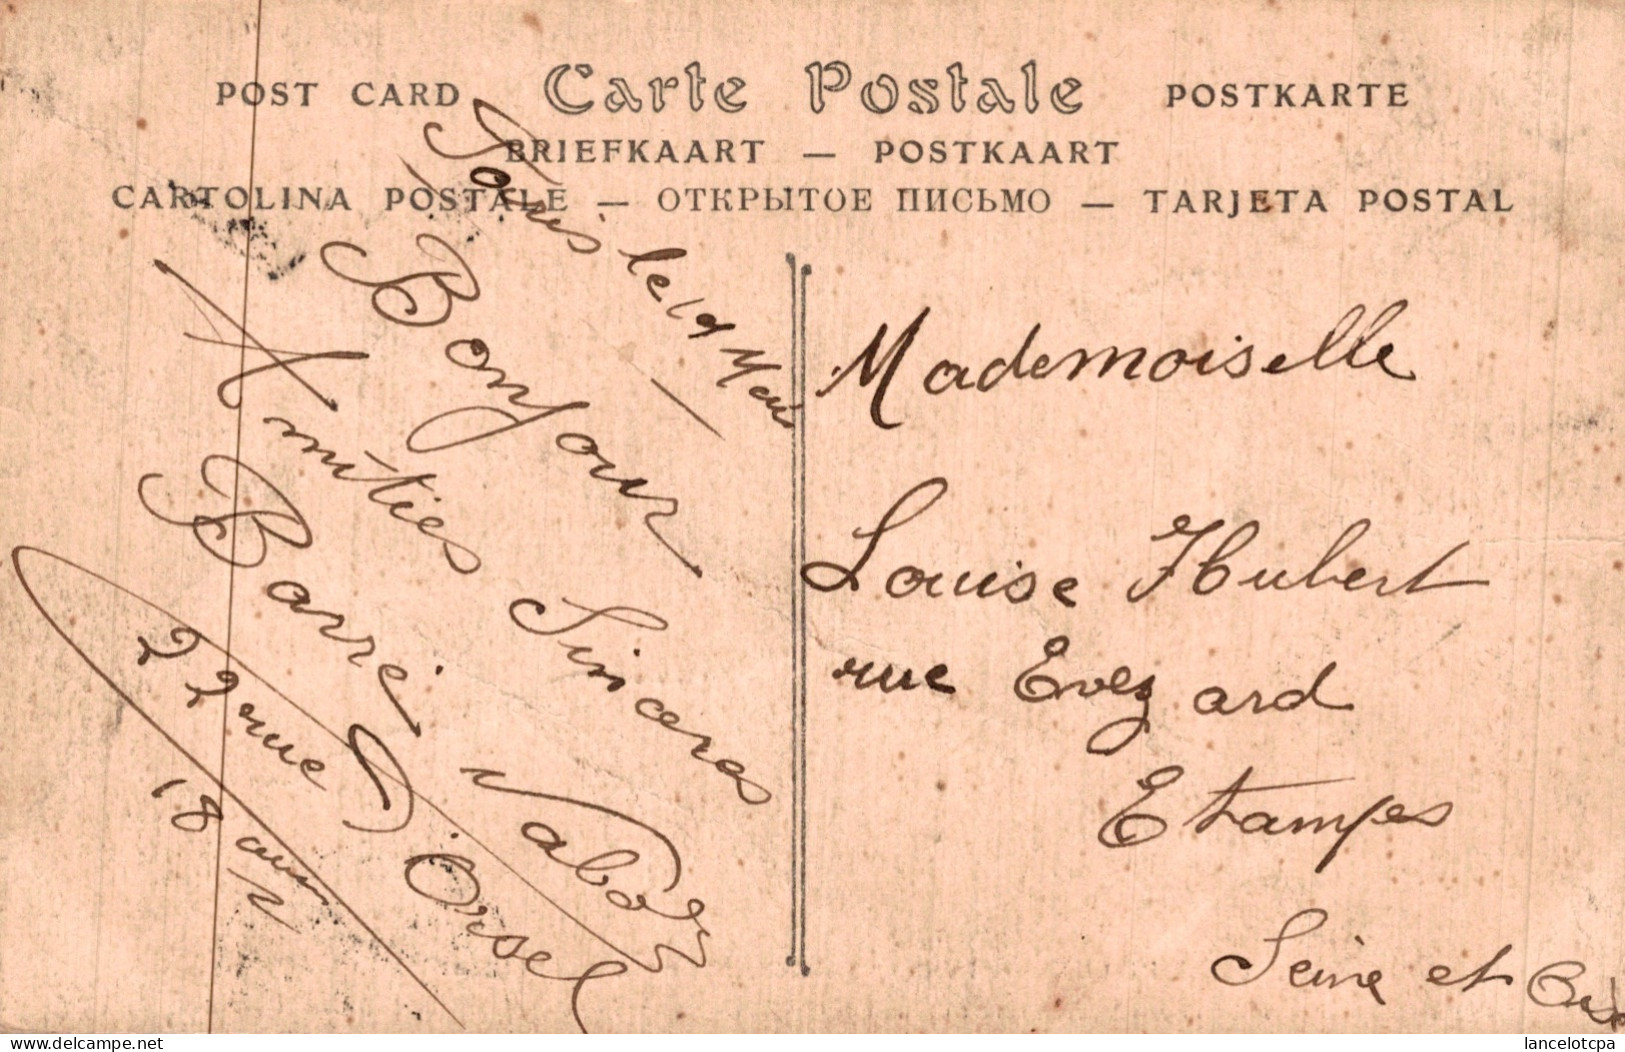 POST CARD Carte Postale POSTKARTE
BRIEFKAART — POSTKAART
CARTOLINA POSTALE — ОТКРЫТОЕ ПИСЬМО — TARJETA POSTAL
Paris le 19 Mai
Bonjour
Amitiés Sincères
Barré Nabor
22 rue D'Orsel
18
Mademoiselle
Louise Hubert
rue Evezard
Etampes
Seine et Oise
lancelotcpa